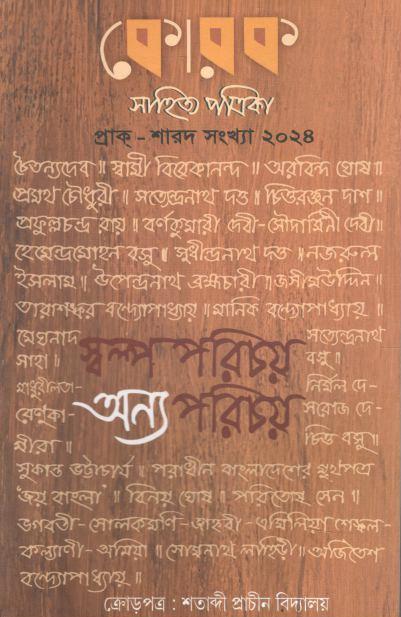 কোরক
সাহিত্য পত্রিকা
প্রাক্ - শারদ সংখ্যা ২০২৪
চৈতন্যদেব ॥ স্বামী বিবেকানন্দ ॥ অরবিন্দ ঘোষ ॥
প্রমথ চৌধুরী ॥ সত্যেন্দ্রনাথ দত্ত ॥ চিত্তরঞ্জন দাশ ॥
প্রফুল্লচন্দ্র রায় ॥ বর্ণকুমারী দেবী-সৌদামিনী দেবী ॥
হেমেন্দ্রমোহন বসু ॥ সুধীন্দ্রনাথ দত্ত ॥ নজরুল
ইসলাম ॥ উপেন্দ্রনাথ ব্রহ্মচারী ॥ জসীমউদ্দিন ॥
তারাশঙ্কর বন্দ্যোপাধ্যায় ॥ মানিক বন্দ্যোপাধ্যায় ॥
মেঘনাদ
সাহা ॥
মাধুরীলতা-
রেণুকা-
মীরা ॥
স্বল্প পরিচয়
অন্য পরিচয়
সত্যেন্দ্রনাথ
বসু ॥
নির্মল দে-
সরোজ দে-
চিত্ত বসু ॥
সুকান্ত ভট্টাচার্য ॥ পরাধীন বাংলাদেশের মুখপত্র
'জয় বাংলা' ॥ বিনয় ঘোষ ॥ পরিতোষ সেন ॥
ভগবতী-সোলকমণি-জাহ্নবী-এমিলিয়া শেঙ্কল-
কল্যাণী-অমিয়া ॥ সোমনাথ লাহিড়ী ॥ অজিতেশ
বন্দ্যোপাধ্যায় ॥
ক্রোড়পত্র : শতাব্দী প্রাচীন বিদ্যালয়